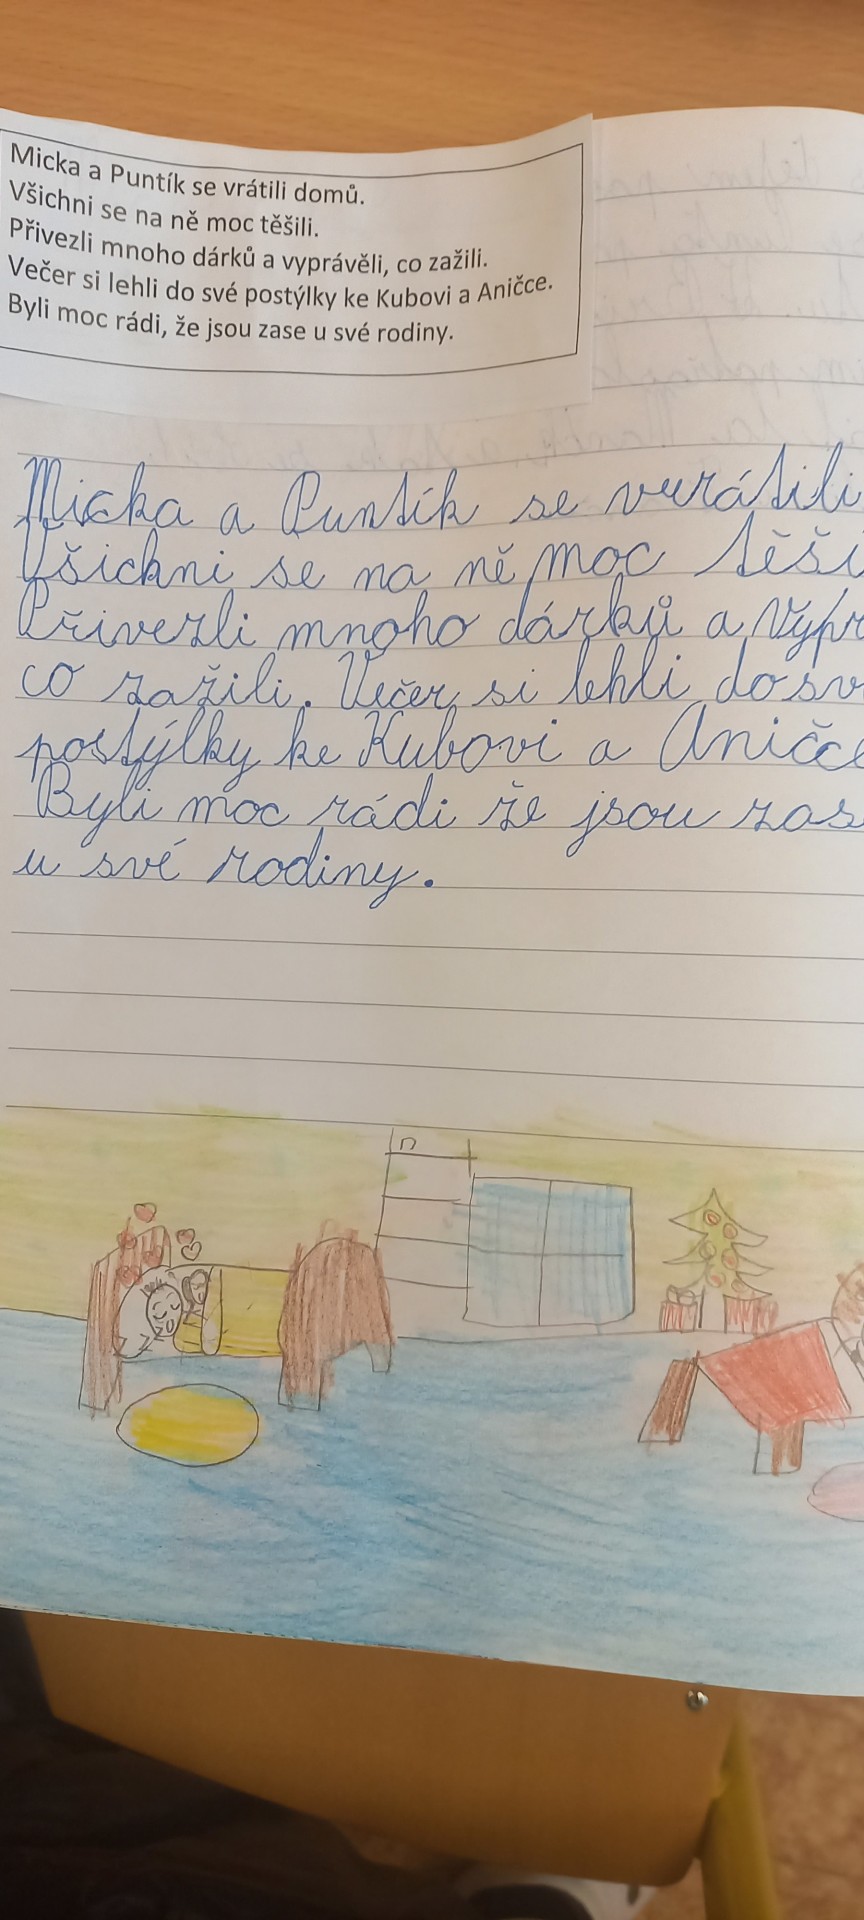 Micka a Puntík se vrátili domů.
Všichni se na ně moc těšili.
Přivezli mnoho dárků a vyprávěli, co zažili.
Večer si lehli do své postýlky ke Kubovi a Aničce.
Byli moc rádi, že jsou zase u své rodiny.
Micka a Puntík se vurátili
Všichni se na ně moc těši
Přivezli mnoho dárků a Vypr
co zažili. Večer si lehli do sv
postýlky ke Kubovi a Aničce
Byli moc rádi že jsou zas
u své rodiny.